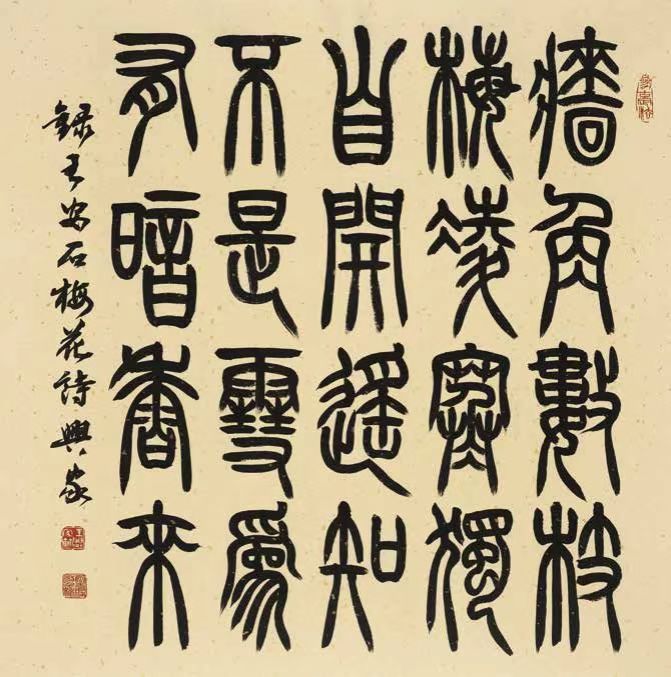 牆角數枝
梅凌寒獨
自開遥知
不是雪爲
有暗香來
錄王安石梅花詩興家